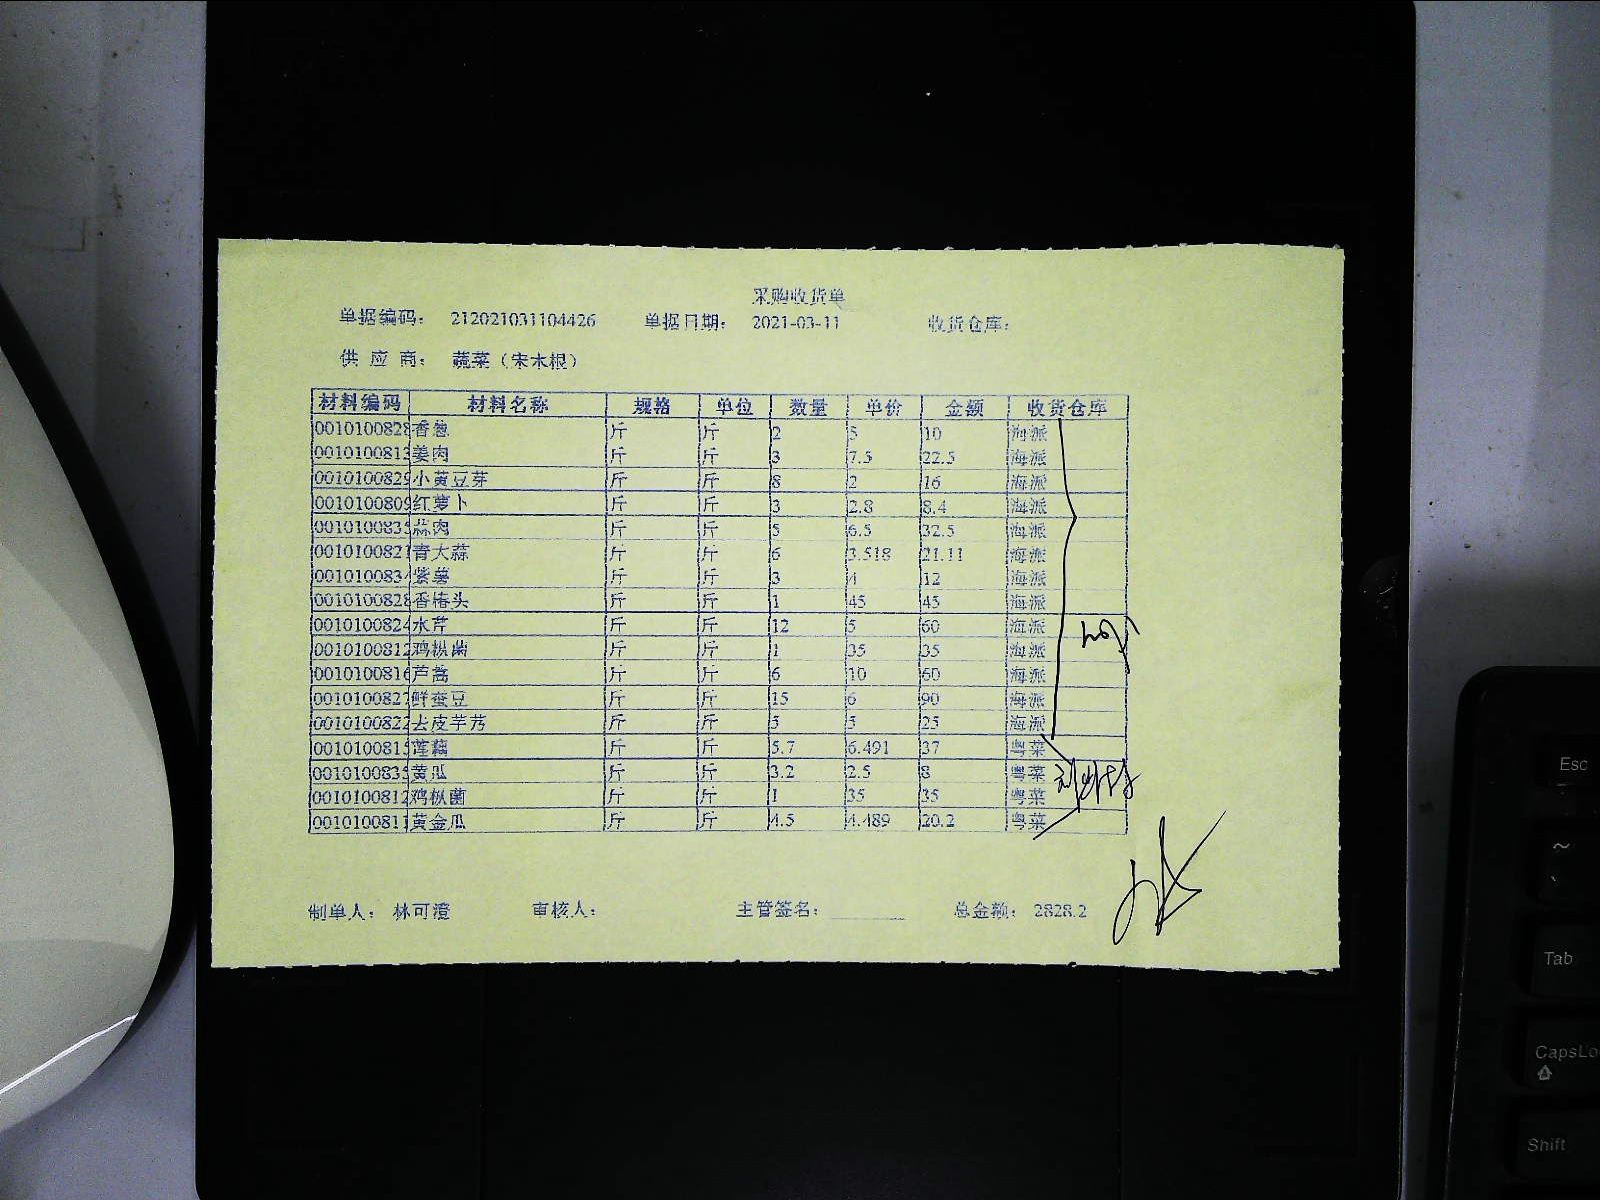 采购收货单
单据编码: 212021031104426 单据日期: 2021-03-11 收货仓库:
供 应 商: 蔬菜（宋木根）
材料编码 材料名称 规格 单位 数量 单价 金额 收货仓库
0010100828 香葱 斤 斤 2 5 10 海派
0010100813 姜肉 斤 斤 3 7.5 22.5 海派
0010100829 小黄豆芽 斤 斤 8 2 16 海派
0010100809 红萝卜 斤 斤 3 2.8 8.4 海派
0010100835 蒜肉 斤 斤 5 6.5 32.5 海派
0010100821 青大蒜 斤 斤 6 3.518 21.11 海派
0010100834 紫薯 斤 斤 3 4 12 海派
0010100828 香椿头 斤 斤 1 45 45 海派
0010100824 水芹 斤 斤 12 5 60 海派
0010100812 鸡枞菌 斤 斤 1 35 35 海派
0010100816 芦蒿 斤 斤 6 10 60 海派
0010100827 鲜蚕豆 斤 斤 15 6 90 海派
0010100822 去皮芋艿 斤 斤 5 5 25 海派
0010100815 莲藕 斤 斤 5.7 6.491 37 粤菜
0010100835 黄瓜 斤 斤 3.2 2.5 8 粤菜
0010100812 鸡枞菌 斤 斤 1 35 35 粤菜
0010100811 黄金瓜 斤 斤 4.5 4.489 20.2 粤菜
制单人: 林可澄 审核人: 主管签名: 总金额: 2828.2
Esc
~
Tab
CapsLo
Shift